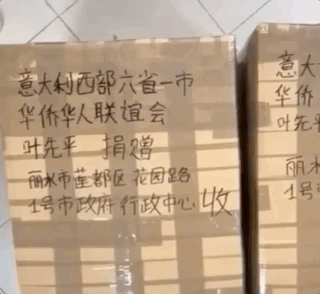 意大利西部六省一市
华侨华人联谊会
叶先平 捐赠
丽水市莲都区花园路
1号市政府行政中心收
意大
华侨
叶先
丽水
1号